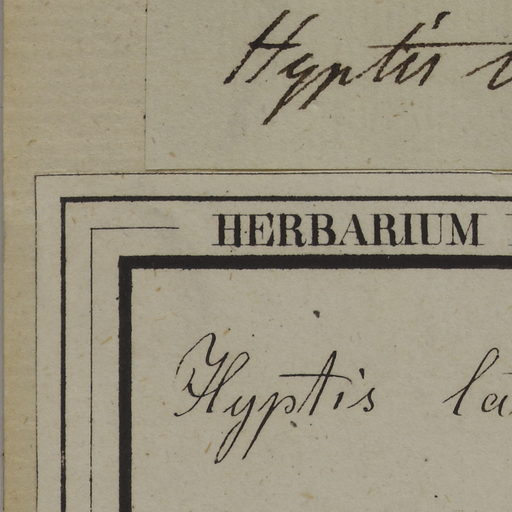 Hyptis
HERBARIUM
Hyptis